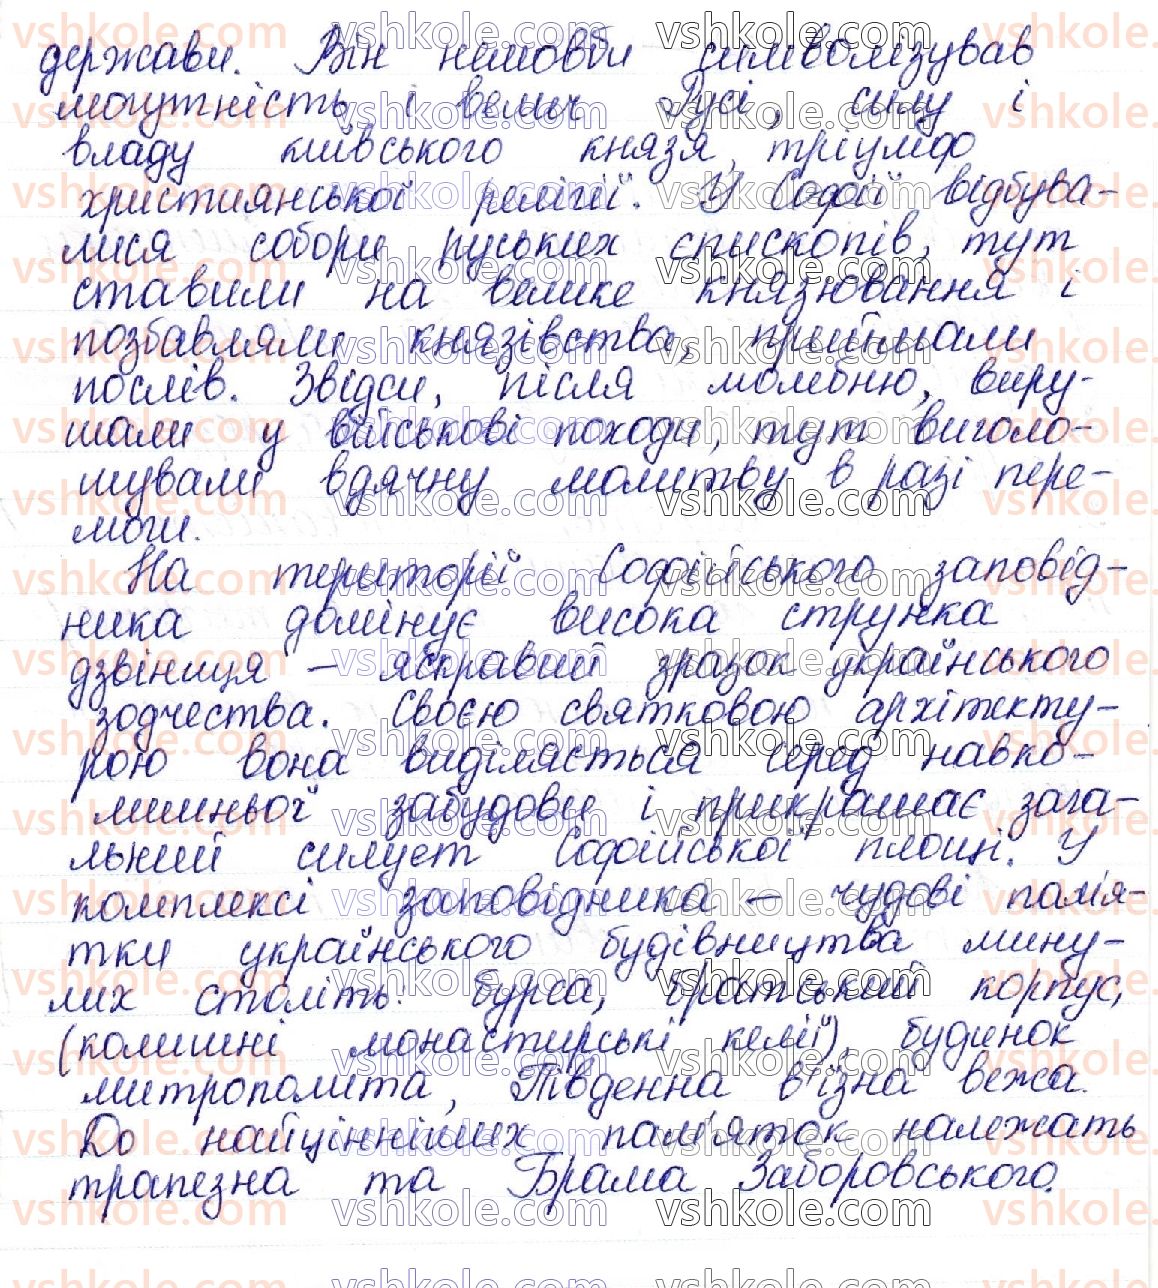 держави. Він немовби символізував
могутність і велич Русі, силу і
владу київського князя, тріумф
християнської релігії. У Софії відбува-
лися собори руських єпископів, тут
ставили на велике князювання і
позбавляли князівства, приймали
послів. Звідси, після молебню, виру-
шали у військові походи, тут виголо-
шували вдячну молитву в разі пере-
моги.
На території Софійського заповід-
ника домінує висока струнка
дзвіниця – яскравий зразок українського
зодчества. Своєю святковою архітекту-
рою вона виділяється серед навко-
лишньої забудови і прикрашає зага-
льний силует Софійської площі. У
комплексі заповідника – чудові пам'я-
тки українського будівництва мину-
лих століть: бурса, братський корпус,
(колишні монастирські келії), будинок
митрополита, Південна в'їзна вежа.
До найцінніших пам'яток належать
трапезна та Брама Заборовського.